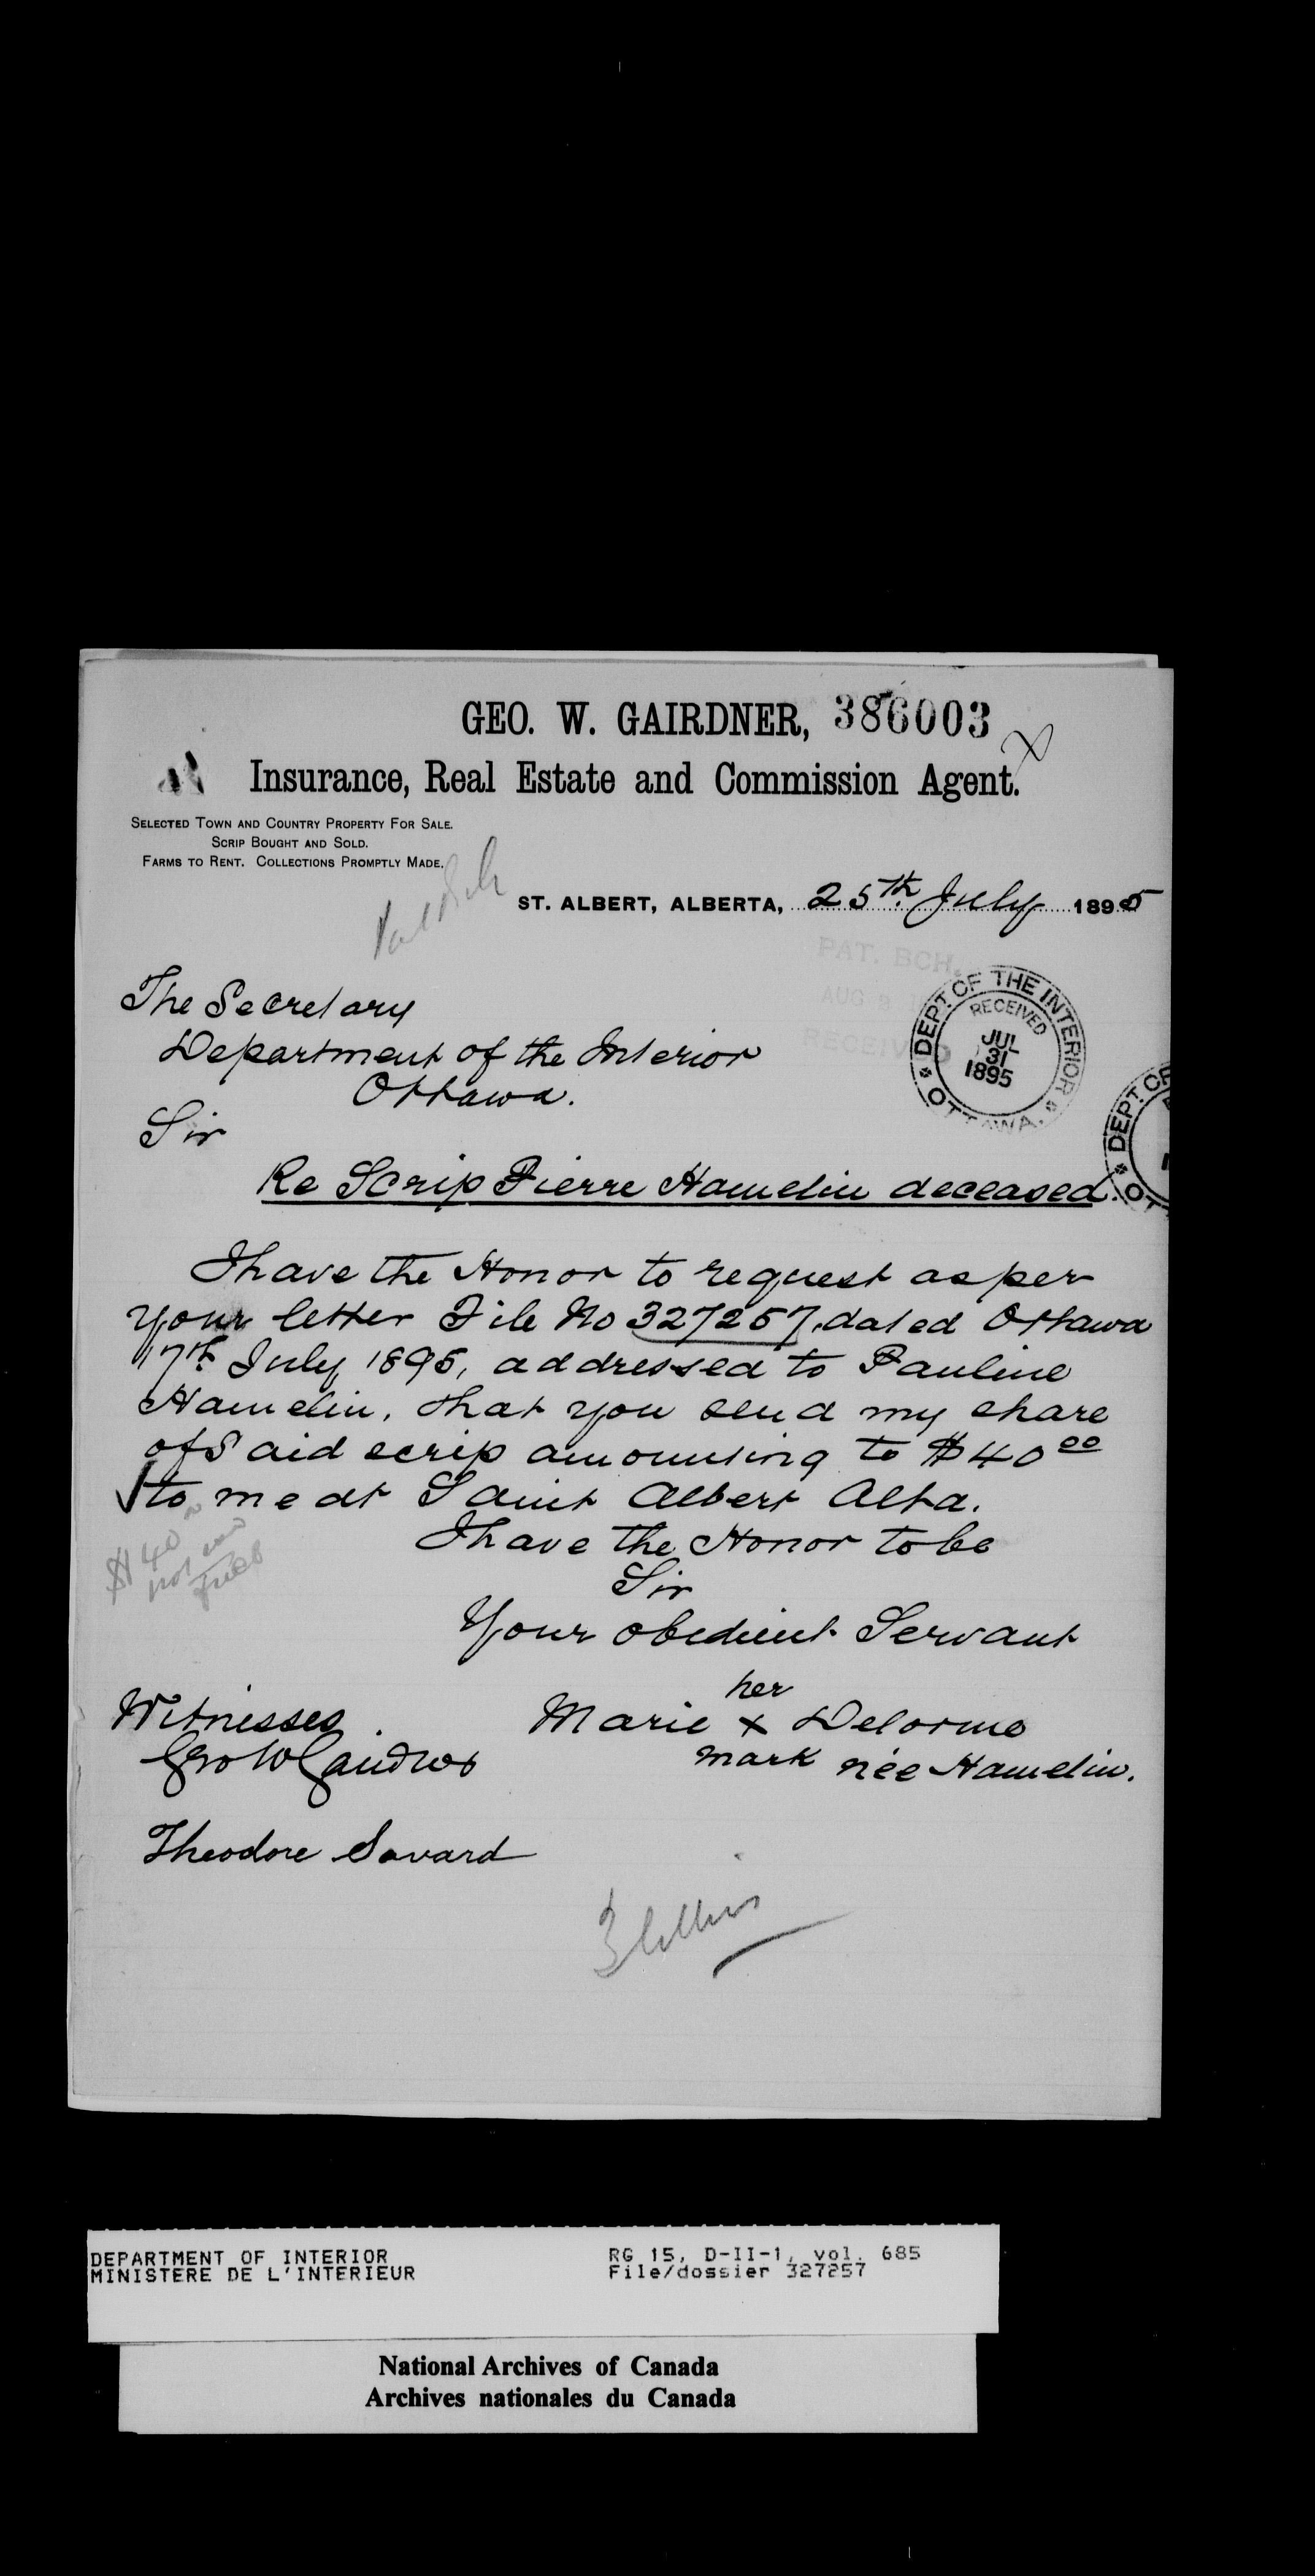 GEO. W. GAIRDNER, 386003
Insurance, Real Estate and Commission Agent.
SELECTED TOWN AND COUNTRY PROPERTY FOR SALE.
SCRIP BOUGHT AND SOLD.
FARMS TO RENT. COLLECTIONS PROMPTLY MADE.
ST. ALBERT, ALBERTA, 25th July 1895
PAT. BCH.
AUG
RECEIVED
DEPT. OF THE INTERIOR
RECEIVED
JUL
31
1895
OTTAWA.
DEPT. OF
OT
The Secretary
Department of the Interior
Ottawa.
Sir
Re Scrip Pierre Hamelin deceased.
I have the Honor to request as per
your letter File No 327257, dated Ottawa
17th July 1895, addressed to Pauline
Hamelin, that you send my share
of Said scrip amounting to $40 00
to me at Saint Albert Alta.
$40
not
I have the Honor to be
Sir
Your obedient Servant
her
Witnesses. Marie x Delorme
Geo W Gairdner mark née Hamelin.
Theodore Savard
DEPARTMENT OF INTERIOR RG 15, D-II-1, vol. 685
MINISTERE DE L'INTERIEUR File/dossier 327257
National Archives of Canada
Archives nationales du Canada